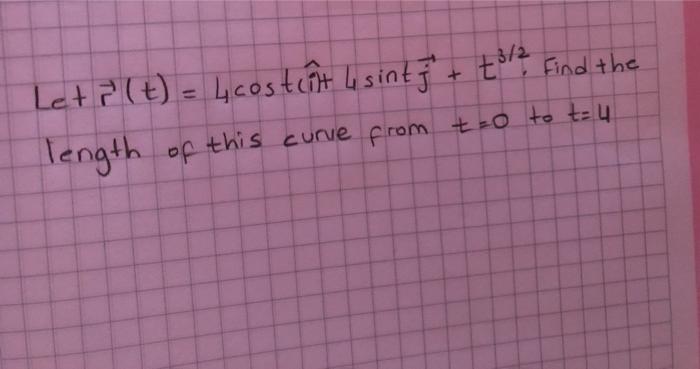 Let r⃗(t) = 4cost(î)+ 4sint j⃗ + t^3/2. Find the
length of this curve from t=0 to t=4